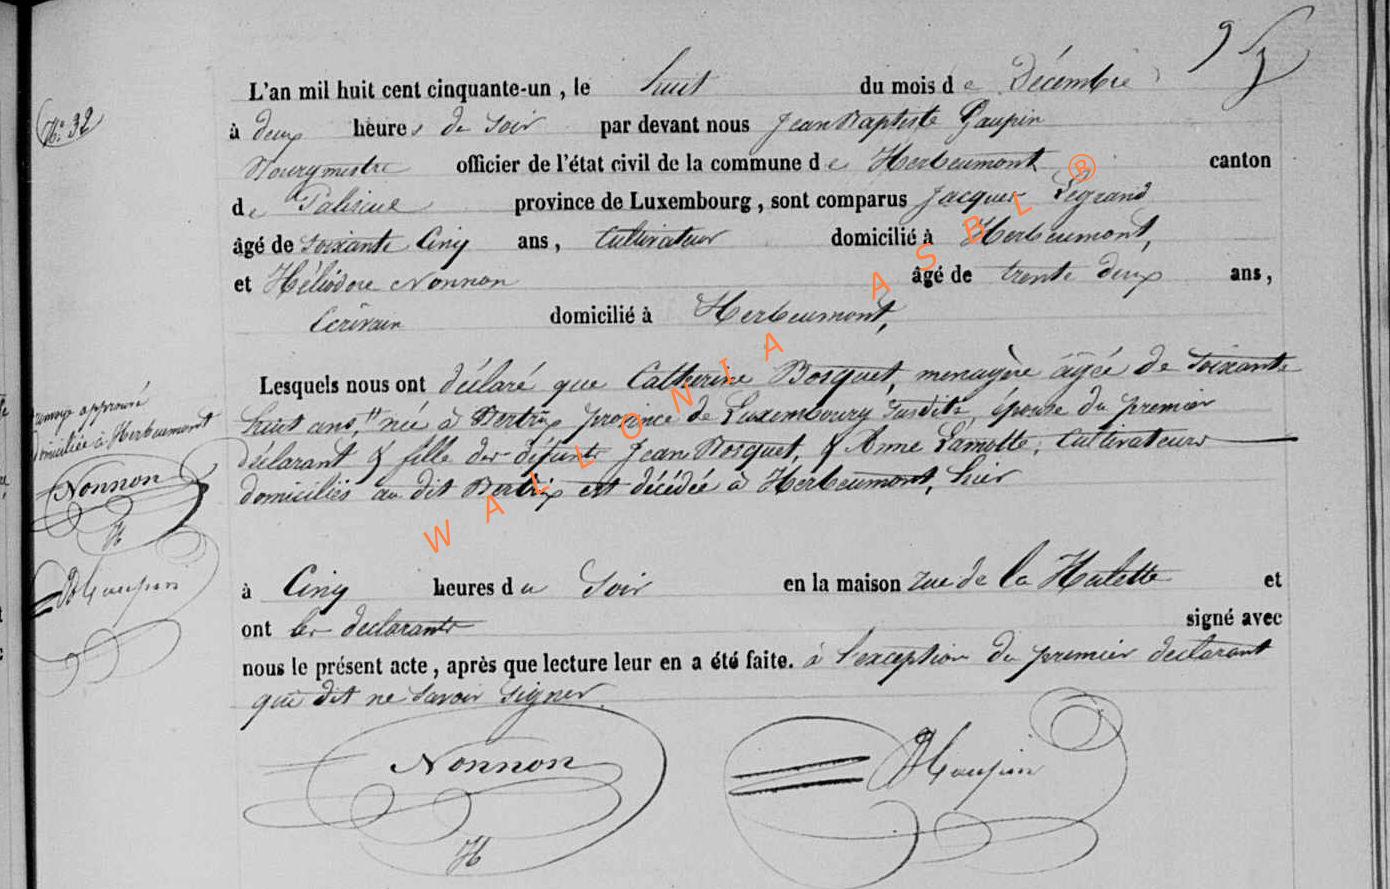 95
N.° 32
L'an mil huit cent cinquante-un, le huit du mois de Décembre
à deux heures du soir par devant nous Jean Baptiste Gaupin
Bourgmestre officier de l'état civil de la commune de Herbeumont canton
de Paliseul province de Luxembourg, sont comparus Jacques Legrand
âgé de soixante Cinq ans, Cultivateur domicilié à Herbeumont,
et Héliodore Nonnon âgé de trente deux ans,
Ecrivain domicilié à Herbeumont,
Lesquels nous ont déclaré que Catherine Bosquet, menagère âgée de soixante
huit ans, née à Bertrix province de Luxembourg susdite, épouse du premier
déclarant & fille des défunts Jean Bosquet, & Anne Lamotte, Cultivateurs
domiciliés au dit Bertrix est décédée à Herbeumont, hier
à Cinq heures du Soir en la maison rue de la Hulette et
ont les declarants signé avec
nous le présent acte, après que lecture leur en a été faite. à l'exception du premier declarant
qui dit ne savoir signer.
Nonnon
H
JB Gaupin
renvoye approuvé
domiciliée à Herbeumont
Nonnon
H
JB Gaupin
WALLONIA ASBL ®